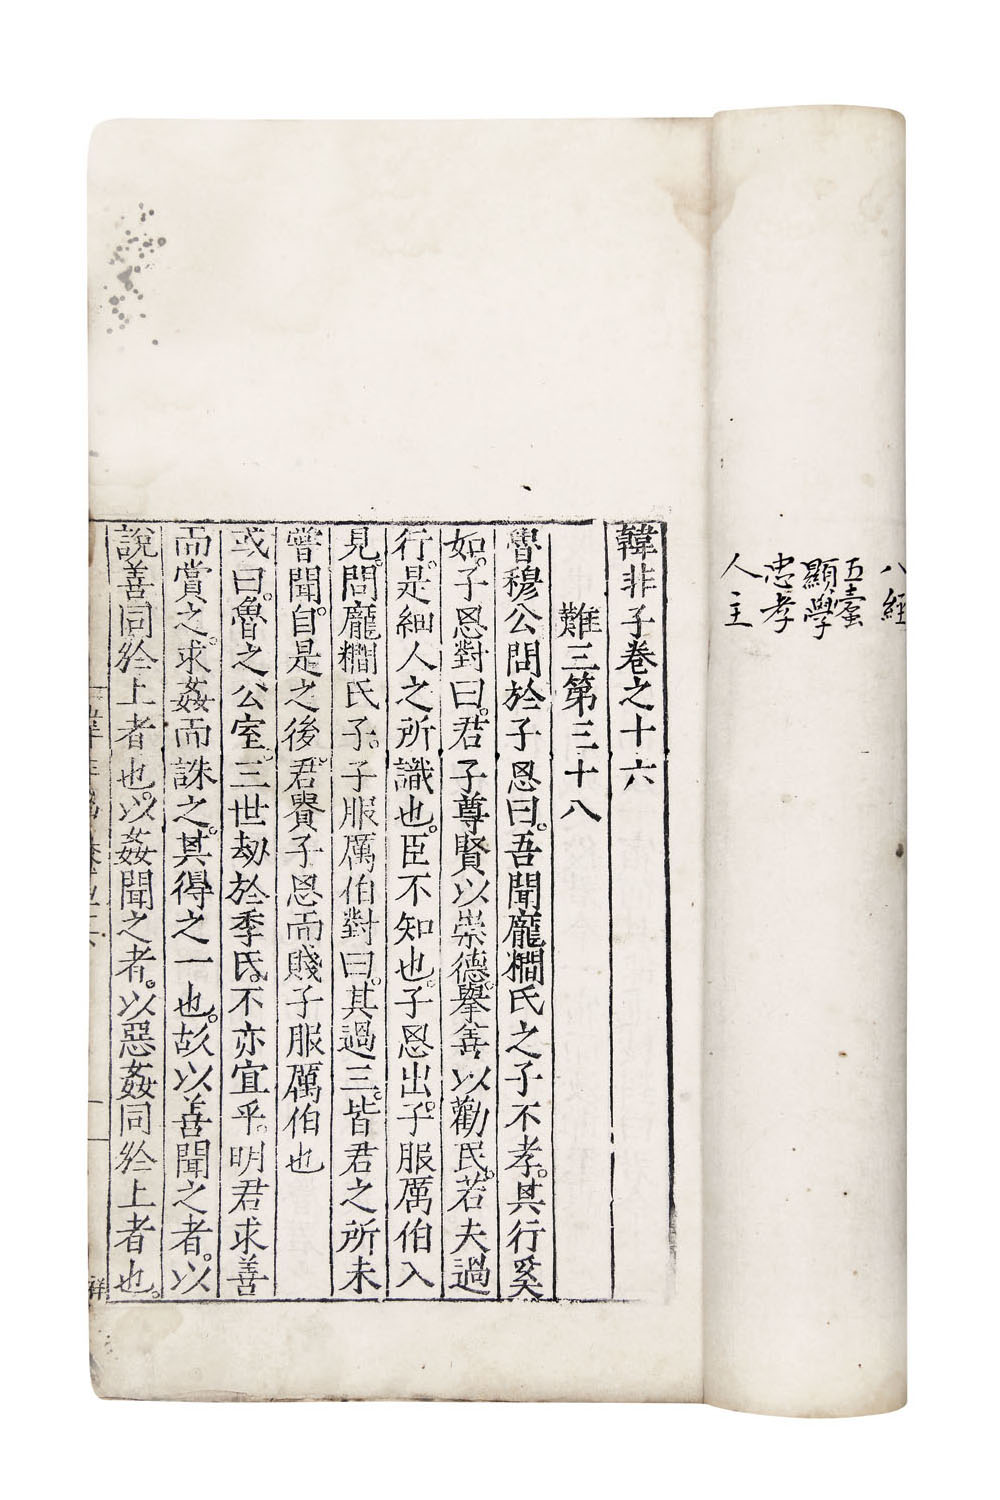 八經
五蠹
顯學
忠孝
人主
韓非子卷之十六
難三第三十八
魯穆公問於子思曰。吾聞龐𥼊氏之子不孝。其行奚
如。子思對曰。君子尊賢以崇德。舉善以勸民。若夫過
行。是細人之所識也。臣不知也。子思出。子服厲伯入
見。問龐𥼊氏子。子服厲伯對曰。其過三。皆君之所未
嘗聞。自是之後。君貴子思而賤子服厲伯也
或曰。魯之公室。三世劫於季氏。不亦宜乎。明君求善
而賞之。求姦而誅之。其得之一也。故以善聞之者。以
說善同於上者也。以姦聞之者。以惡姦同於上者也。
祥